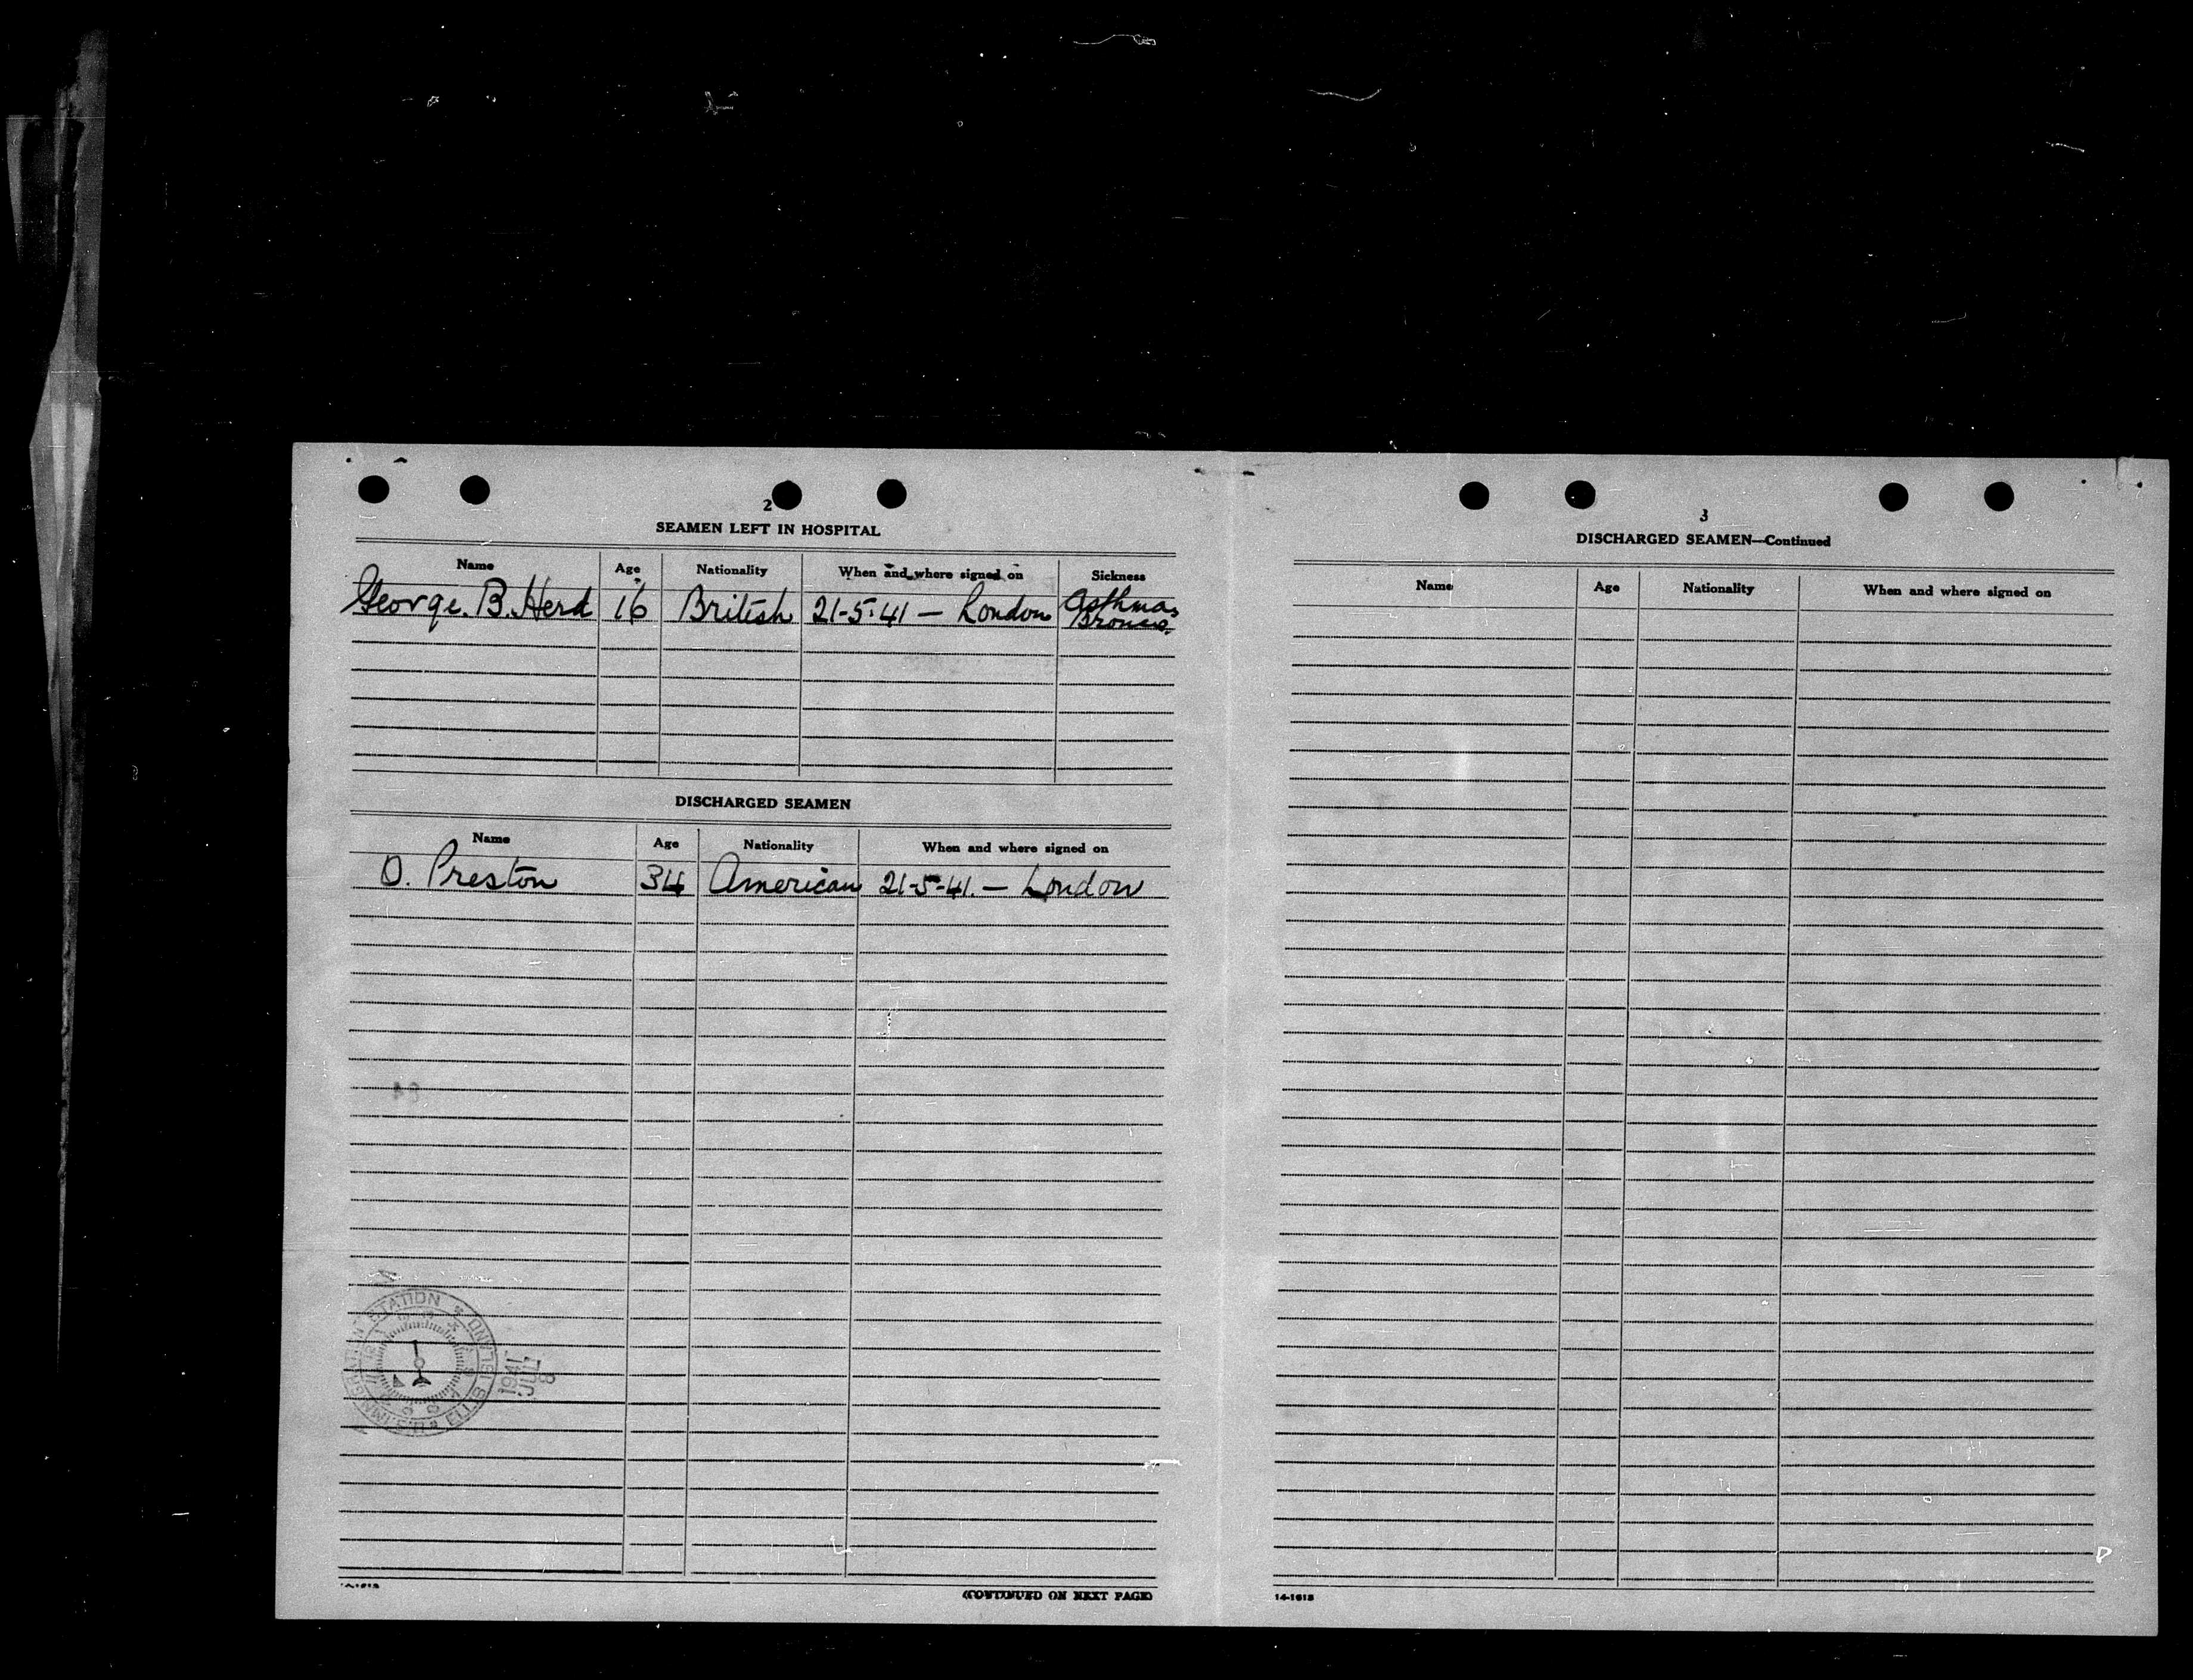 2
SEAMEN LEFT IN HOSPITAL
Name Age Nationality When and where signed on Sickness
George. B. Herd 16 British 21-5-41 — London Asthma
DISCHARGED SEAMEN
Name Age Nationality When and where signed on
O. Preston 34 American 21-5-41. — London
STATION * ELLIS ISLAND
1941
JUL
8
(CONTINUED ON NEXT PAGE)
3
DISCHARGED SEAMEN—Continued
Name Age Nationality When and where signed on
14-1613